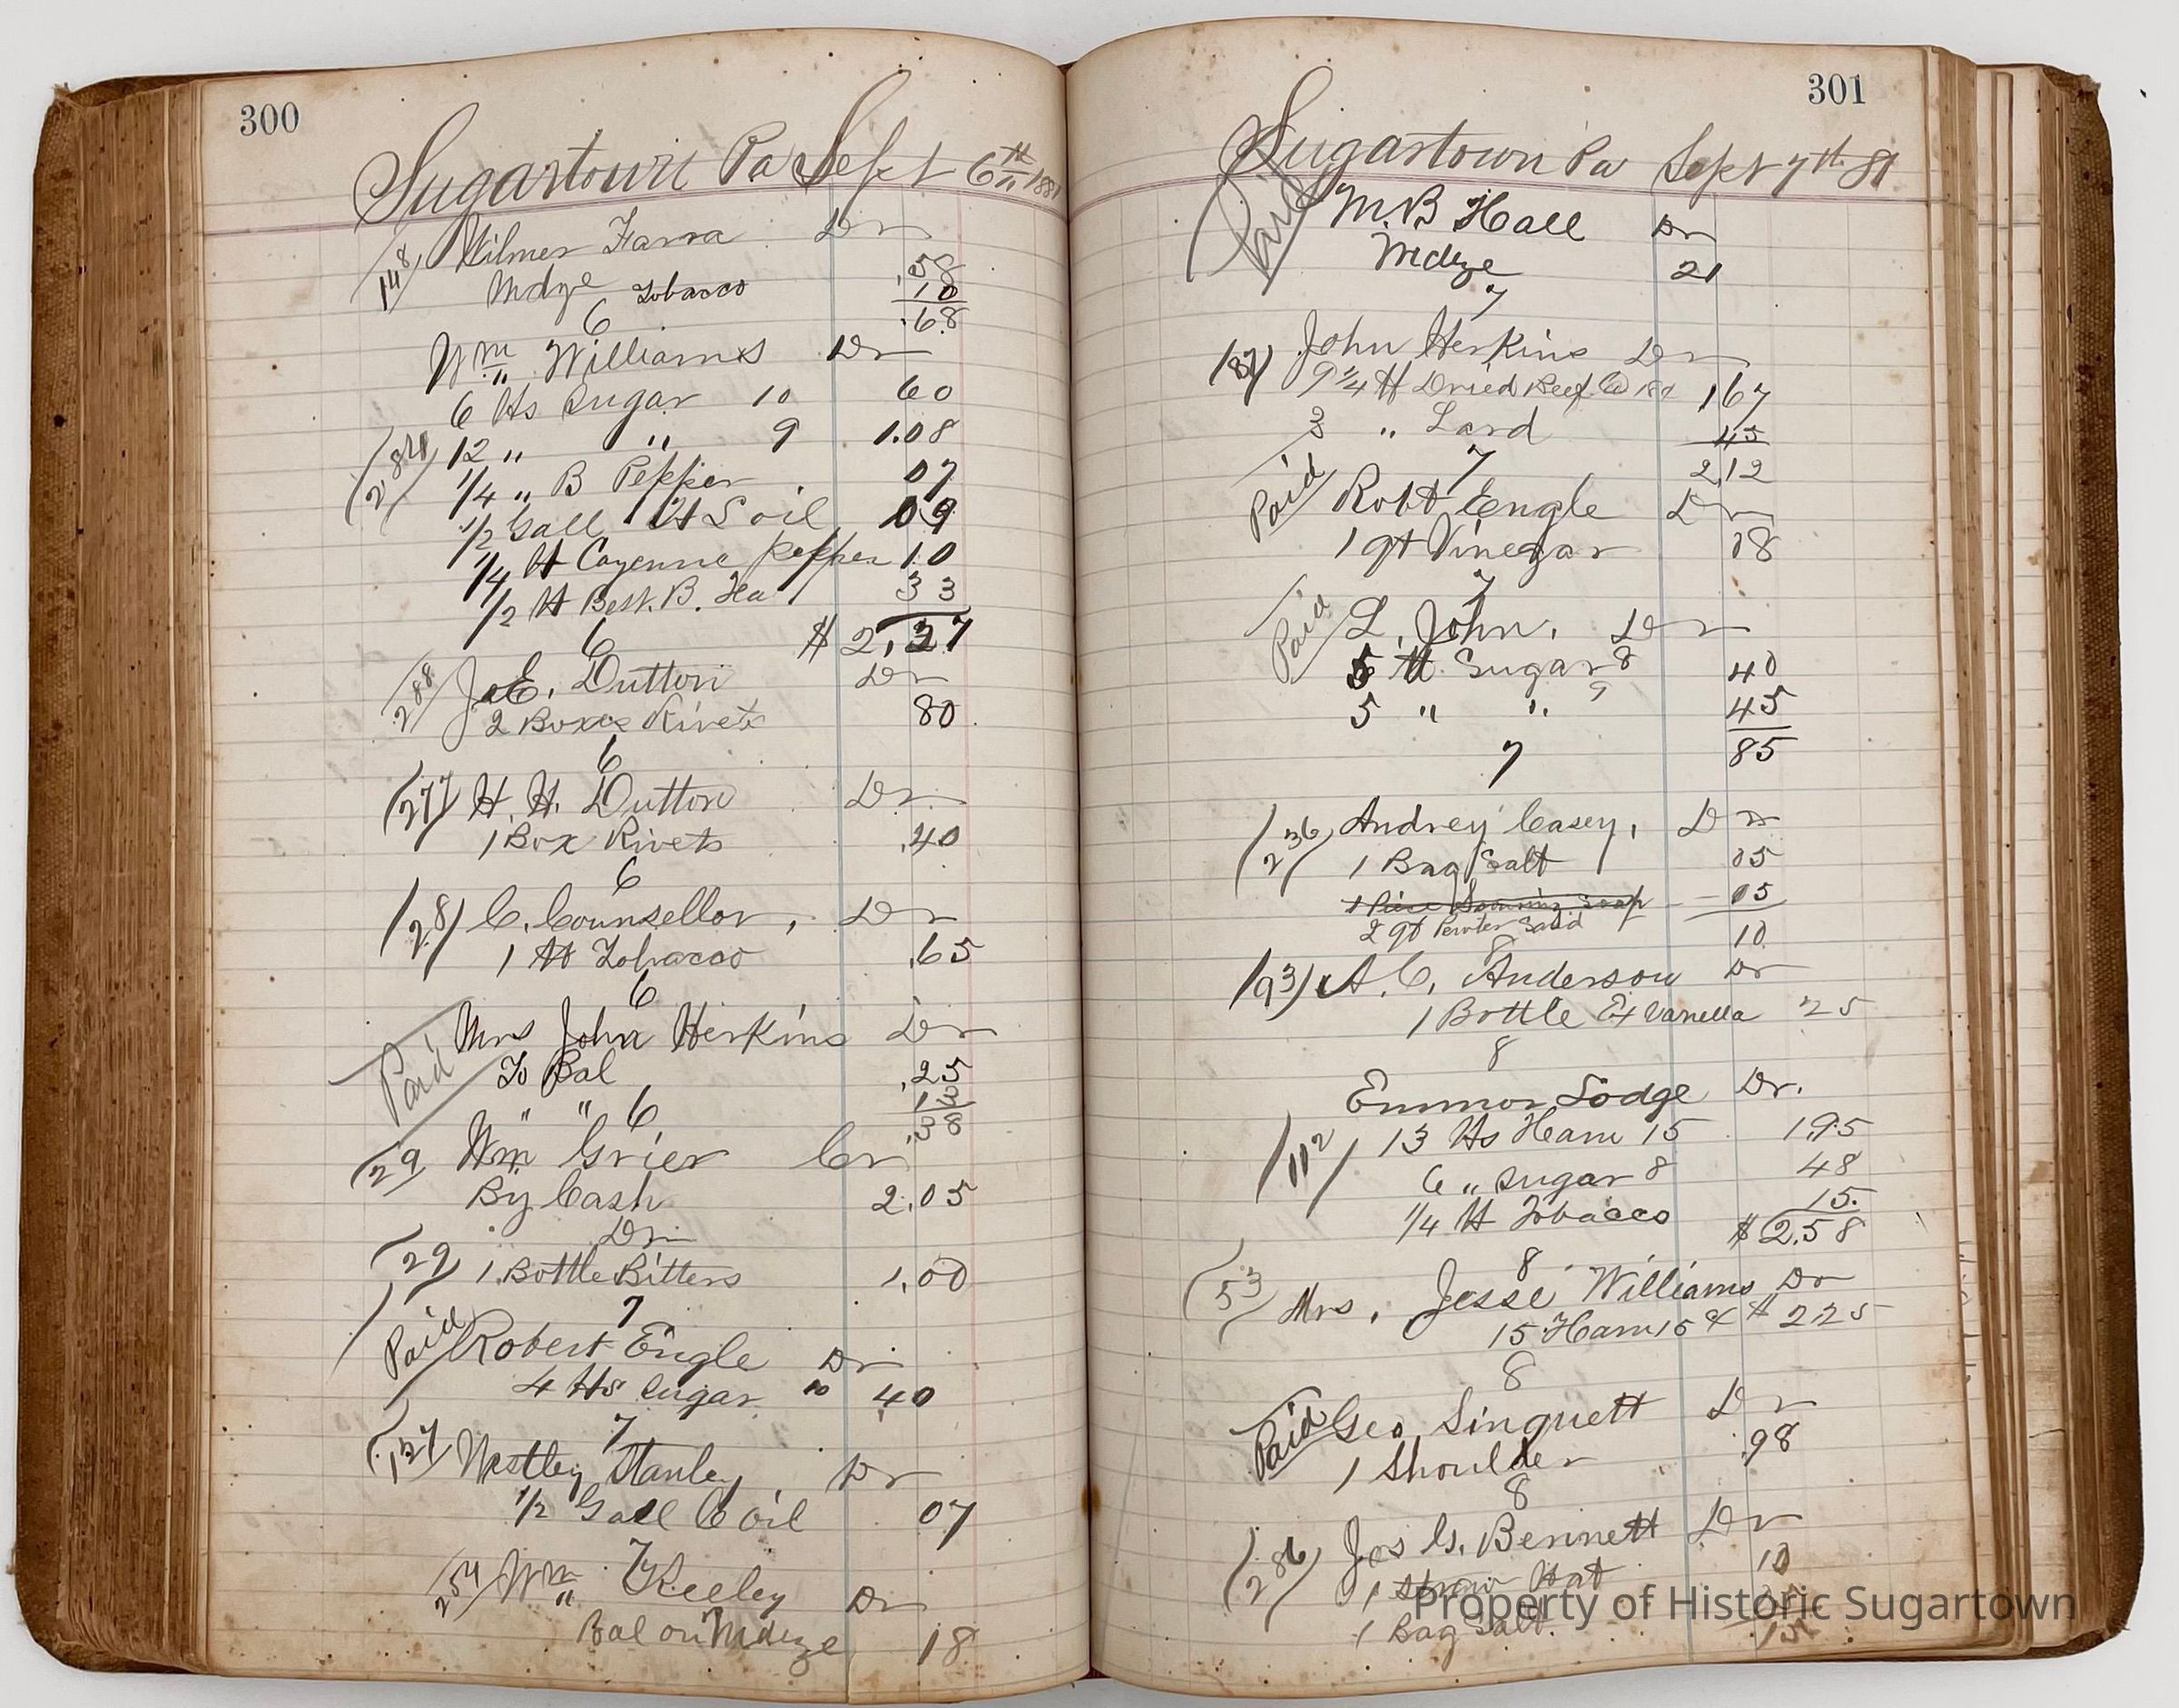 300
Sugartown Pa Sept 6th 1881
148 Wilmer Farra Dr
Mdze .58
Tobacco .10
6 .68
Wm Williams Dr
6 lbs Sugar 10 60
284 12 " " 9 1.08
1/4 " B Pepper 07
1/2 Gall H L oil 09
1/4 lb Cayenne pepper 10
1/2 lb Best. B. Tea 33
6 $ 2,27
288 J. E. Dutton Dr
2 Boxes Rivets 80
6
277 H. H. Dutton Dr
1 Box Rivets .40
6
28 C. Counsellor, Dr
1 lb Tobacco .65
6
Paid Mrs John Herkins Dr
To Bal .25
" " 6 13
.38
29 Wm Grier Cr
By Cash 2.05
Dr
29 1 Bottle Bitters 1.00
7
Paid Robert Engle Dr
4 lbs Sugar 10 40
7
127 Westley Stanley Dr
1/2 Gall C oil 07
7
254 Wm Keeley Dr
Bal on Mdze 18
301
Sugartown Pa Sept 7th 81
Paid M. B Hall Dr
Mdze 21
7
John Herkins Dr
9 1/4 lb Dried Beef @ 18c 1,67
3 " Lard 45
7 2,12
Paid Robt Engle Dr
1 qt Vinegar 08
7
Paid L. John. Dr
5 lb Sugar 8 40
5 " " 9 45
85
7
236 Andrey Casey, Dr
1 Bag Salt 05
1 Piece Soap 05
2 qt 10
8
193 A. C. Anderson Dr
1 Bottle Ex Vanella 25
8
Emmor Lodge Dr.
112 13 lbs Ham 15 1.95
6 " Sugar 8 48
1/4 lb Tobacco 15
$ 2.58
8
53 Mrs. Jesse Williams Dr
15 Ham 15 $ 2.25
8
Paid Geo Singuett Dr
1 Shoulder .98
8
286 Jos G. Bennett Dr
1 Straw Hat 10
1 Bag Salt
Property of Historic Sugartown